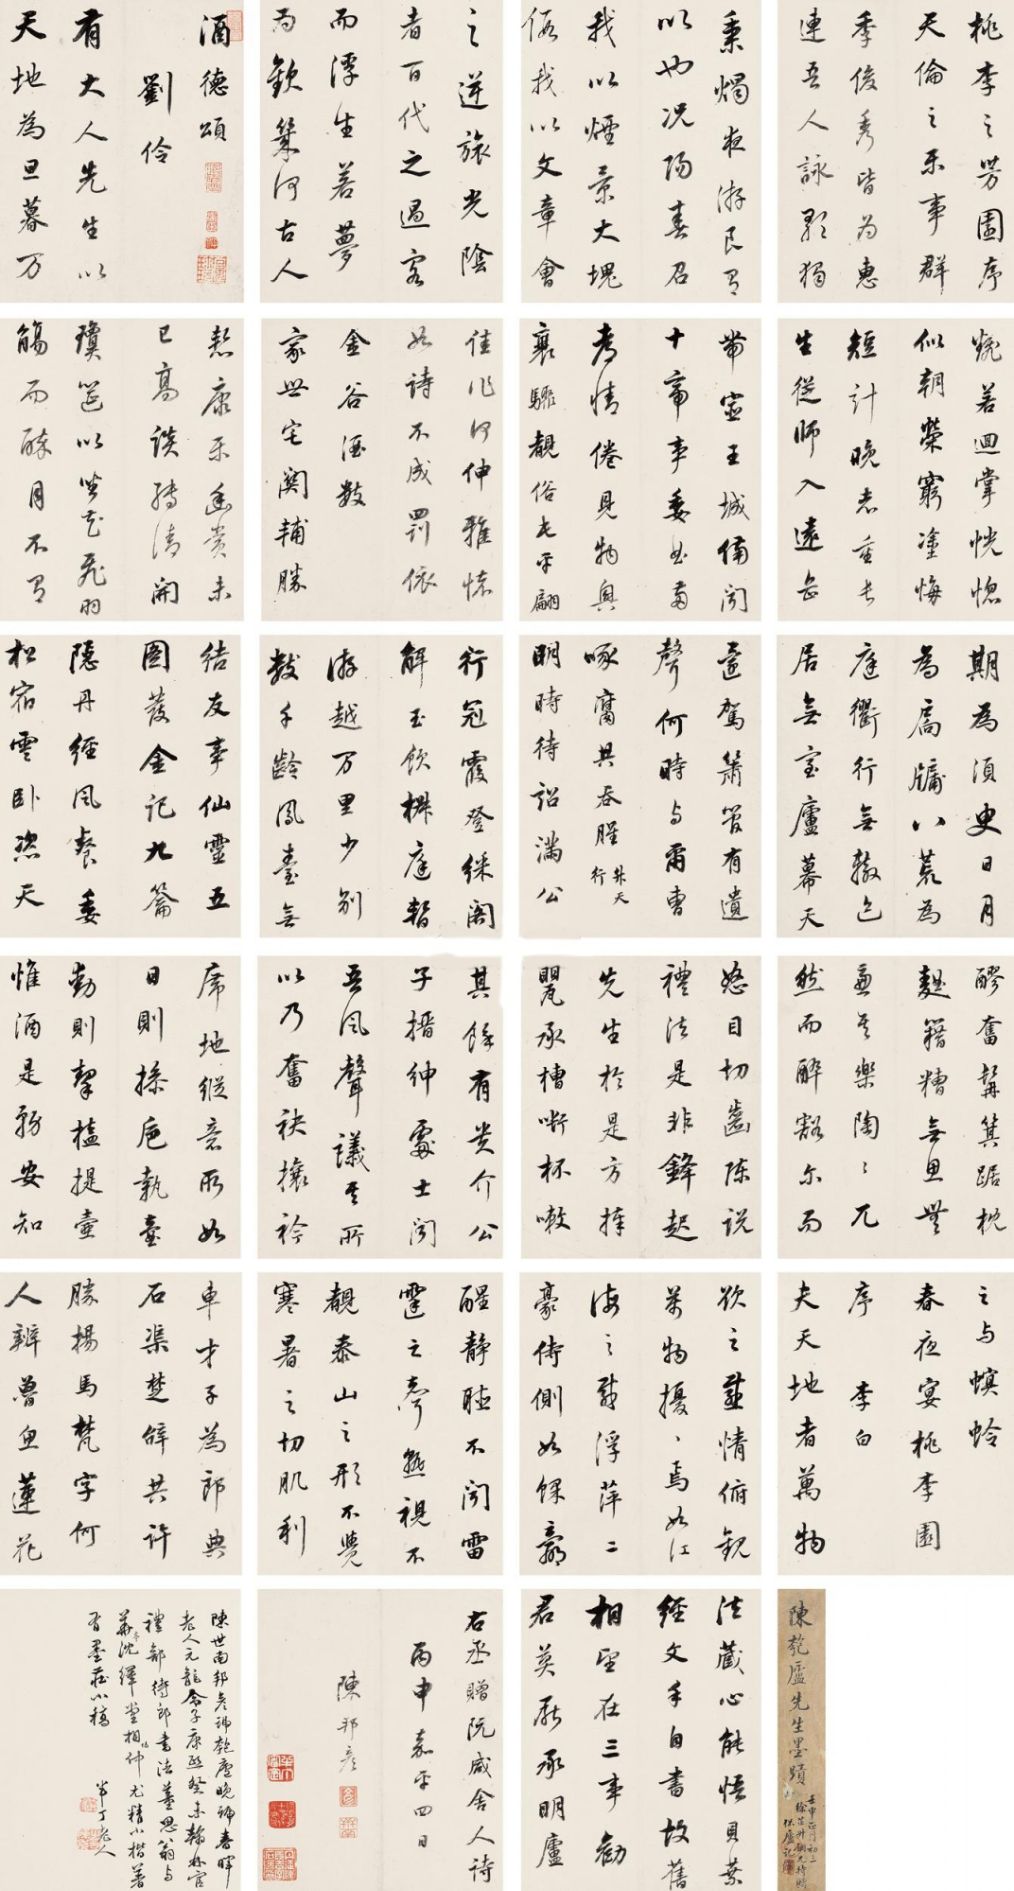 酒德頌
劉伶
有大人先生以
天地為旦暮万
期為須臾日月
為扃牖八荒為
庭衢行無轍迹
居無室廬幕天
席地縱意所如
日則操卮執壺
動則挈榼提壺
惟酒是務安知
其餘有貴介公
子搢紳處士聞
吾風聲議其所
以乃奮袂攘衿
怒目切齒陳說
禮法是非鋒起
先生於是方捧
罌承槽啣杯嗽
醪奮髯箕踞枕
麴籍糟無思無
慮其樂陶〻兀
然而醉豁尔而
醒靜聽不聞雷
霆之聲熟視不
覩泰山之形不覺
寒暑之切肌利
欲之感情俯觀
万物擾〻焉如江
海之載浮萍二
豪侍側如蜾蠃
之与螟蛉
春夜宴桃李園
序 李白
夫天地者萬物
之逆旅光陰
者百代之過客
而浮生若夢
為歡幾何古人
秉燭夜游良有
以也况陽春召
我以煙景大塊
假我以文章會
桃李之芳園序
天倫之樂事群
季俊秀皆為惠
連吾人詠歌獨
慙康樂幽賞未
已高談轉清開
瓊筵以坐花飛羽
觴而醉月不有
佳作何伸雅懷
如詩不成罰依
金谷酒數
家世宅關輔勝
帶宦王城備聞
十帝事委曲兩
都情倦見物興
衰驟覩俗屯平翩
翩若迴掌恍惚
似朝榮窮塗悔
短計晚志重長
生從師入遠岳
結友事仙靈五
圖發金記九籥
隱丹經風餐委
松宿雲卧恣天
行冠霞登綵閣
解玉飲椒庭暫
游越万里少別
數千齡鳳臺無
還駕簫管有遺
聲何時与爾曹
啄腐共吞腥 升天行
明時待詔滿公
車才子為郎典
石渠楚辭共許
勝揚馬梵字何
人辨魯魚蓮花
法藏心能悟貝葉
經文手自書故舊
相望在三事勸
君莫厭承明廬
右丞贈阮咸舍人詩
丙申嘉平四日
陳邦彥
陳世南邦彥號匏廬晚號春暉
老人元龍從子康熙癸未翰林官
禮部侍郎書法董思翁与
華亭沈繹堂相伯仲尤精小楷著
有墨莊小稿
半丁老人
陳匏廬先生墨蹟